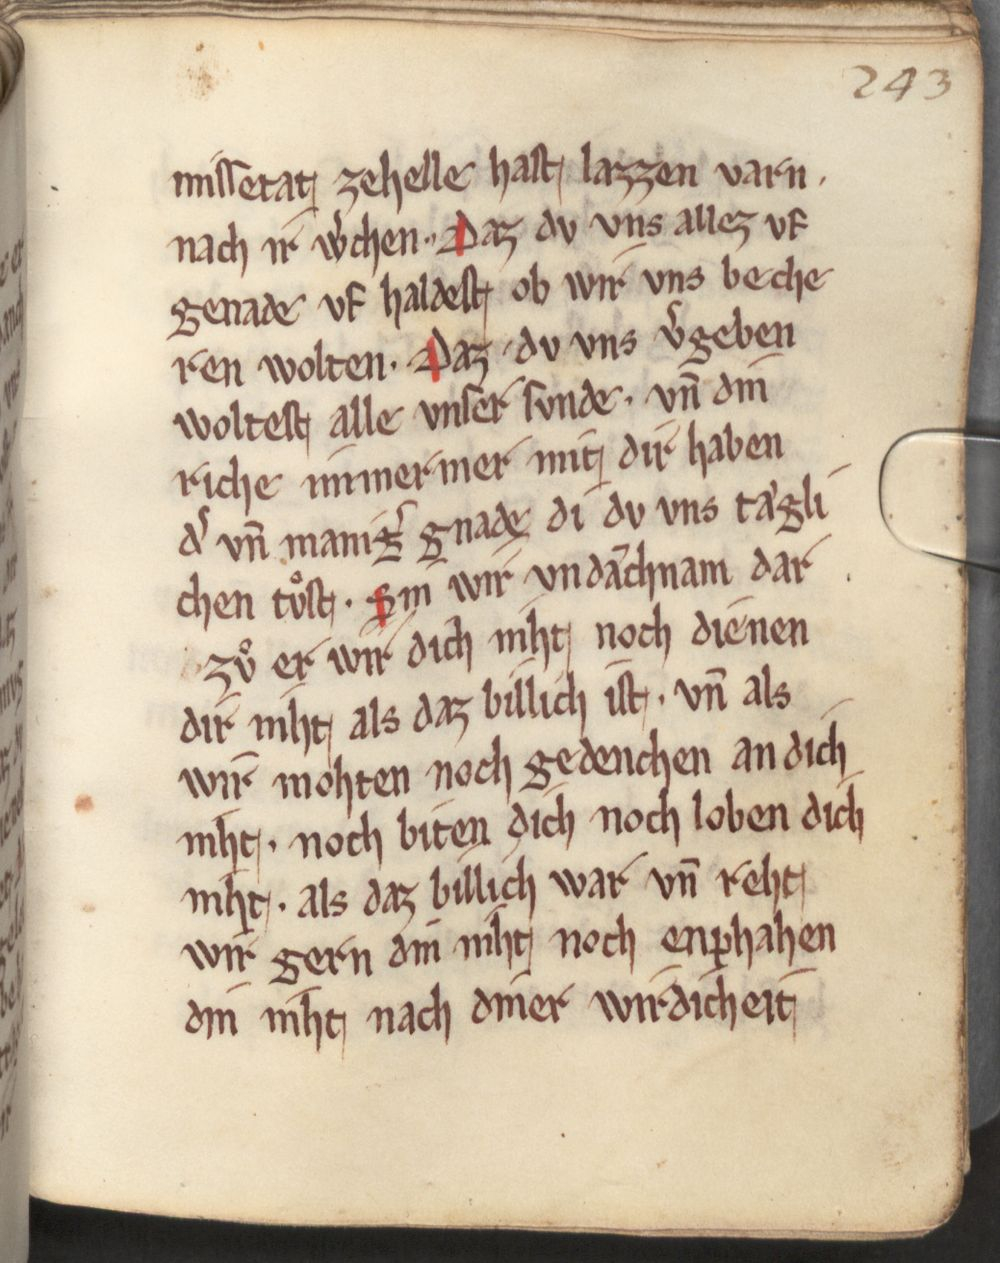 243
missetat zehelle hast lazzen varn.
nach ir wͤchen. Daz du uns allez uf
genade uf haldest ob wir uns beche
ren wolten. Daz du uns v̾geben
woltest alle unser sunde. un̄ din
riche immermer mit dir haben
d̾ un̄ manig̾ gnade di du uns tagli
chen tuͦst. Sin wir undachnam dar
zuͦ er wir dich niht noch dienen
dir niht als daz billich ist. un̄ als
wir mohten noch gedenchen an dich
niht. noch biten dich noch loben dich
niht. als daz billich war un̄ reht
wir gern din niht noch enphahen
din niht nach diner wirdicheit